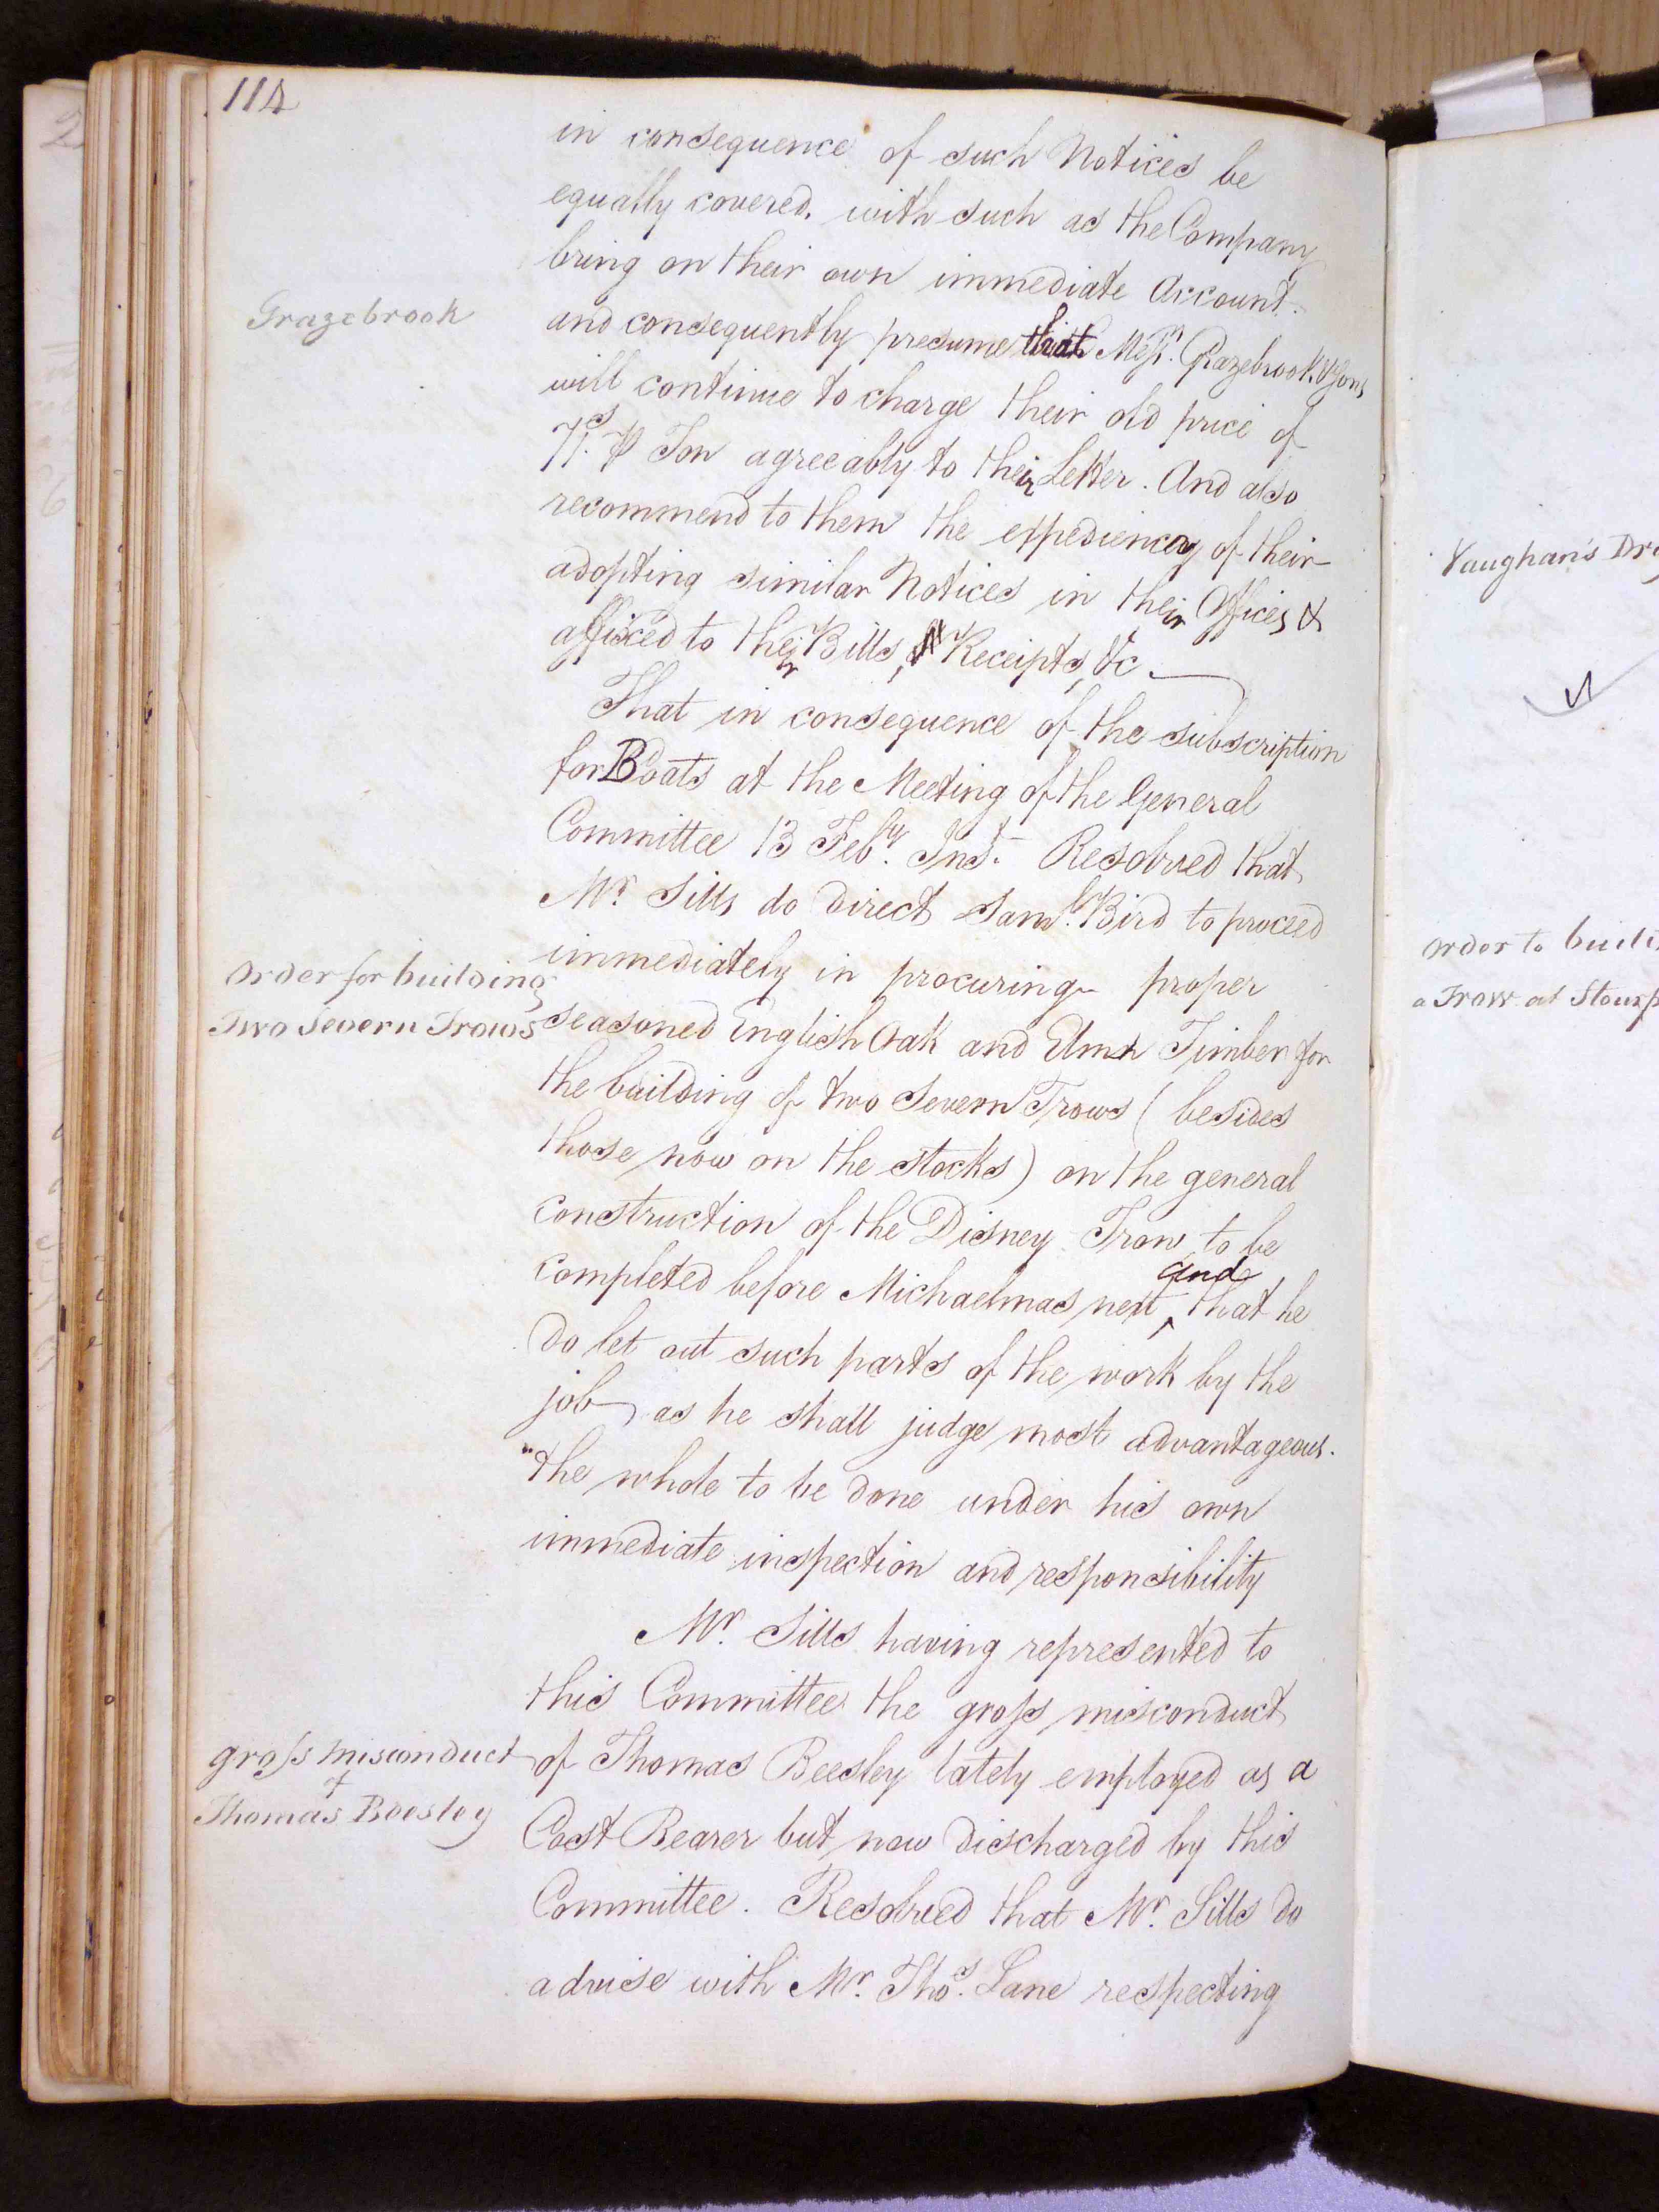 114
in consequence of such Notices be
equally covered, with such as the Company
bring on their own immediate Account.
Grazebrook
and consequently presume that Messrs. Grazebrook & Sons
will continue to charge their old price of
7s. ⅌ Ton agreeably to their Letter. And also
recommend to them the expediency of their
adopting similar Notices in their Offices &
affixed to their Bills, Receipts, &c.
That in consequence of the subscription
for Boats at the Meeting of the General
Committee 13 Feby. Inst. Resolved that
Mr. Sills do direct Saml. Bird to proceed
immediately in procuring proper
Order for building
Two Severn Trows
seasoned English Oak and Elm Timber for
the building of two Severn Trows (besides
those now on the stocks) on the general
construction of the Disney Trow to be
completed before Michaelmas next, and that he
do let out such parts of the work by the
job, as he shall judge most advantageous.
"the whole to be done under his own
immediate inspection and responsibility
Mr. Sills having represented to
this Committee the gross misconduct
gross misconduct
of
Thomas Beesley
of Thomas Beesley lately employed as a
Cost Bearer but now discharged by this
Committee. Resolved that Mr. Sills do
advise with Mr. Thos. Lane respecting
Vaughan's
Order to
a Trow at